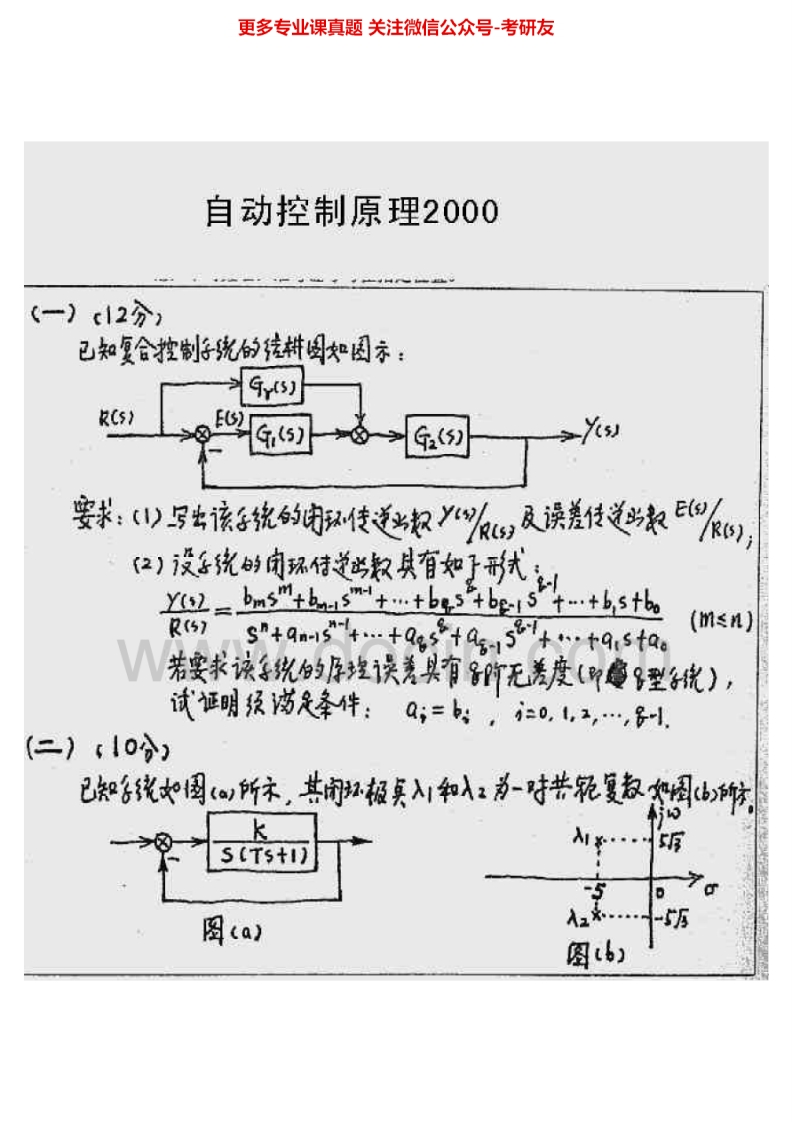 更多专业课真题 关注微信公众号-考研友
自动控制原理2000
(一) (12分)
已知复合控制系统的结构图如图示：
Gr(s)
R(s) E(s) G1(s) G2(s) Y(s)
−
要求：(1) 写出该系统的闭环传递函数 Y(s)/R(s) 及误差传递函数 E(s)/R(s);
(2) 设系统的闭环传递函数具有如下形式：
Y(s)/R(s) = (bm s^m + bm-1 s^m-1 + ··· + bq s^q + bq-1 s^q-1 + ··· + b1 s + b0) / (s^n + an-1 s^n-1 + ··· + aq s^q + aq-1 s^q-1 + ··· + a1 s + a0) (m≤n)
www.docin.com
若要求该系统的原理误差具有q阶无差度(即q型系统)，
试证明须满足条件： ai = bi , i=0, 1, 2, ···, q-1.
(二) (10分)
已知系统如图(a)所示，其闭环极点λ1和λ2为一对共轭复数如图(b)所示。
K / S(TS+1)
−
图(a)
jω
λ1 5√3
-5 0 σ
λ2 -5√3
图(b)